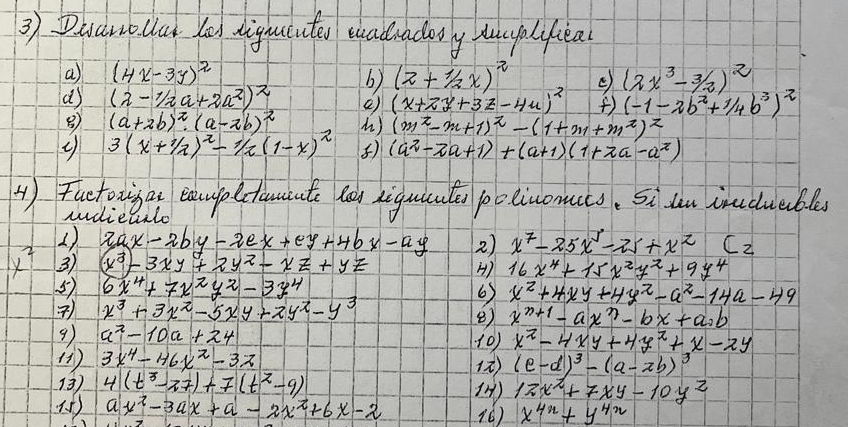 3) Desarrollar los siguientes cuadrados y simplificar
a) (4x-3y)² b) (2+1/2x)² c) (2x³-3/2)²
d) (2-1/2a+2a²)² e) (x+2y+3z-4u)² f) (-1-2b²+1/4b³)²
g) (a+2b)².(a-2b)² h) (m²-m+1)²-(1+m+m²)²
i) 3(x+1/2)²-1/2(1-x)² j) (a²-2a+1)+(a+1)(1+2a-a²)
4) Factorizar completamente los siguientes polinomios. Si son irreducibles
indicarlo
1) 2ax-2by-2cx+cy+4bx-ay 2) x⁷-25x⁵-25+x² C2
x² 3) x³-3xy+2y²-xz+yz 4) 16x⁴+15x²y²+9y⁴
5) 6x⁴+7x²y²-3y⁴ 6) x²+4xy+4y²-a²-14a-49
7) x³+3x²-5xy+2y²-y³ 8) xⁿ⁺¹-axⁿ-bx+a.b
9) a²-10a+24 10) x²-4xy+4y²+x-2y
11) 3x⁴-46x²-32 12) (c-d)³-(a-2b)³
13) 4(t³-27)+7(t²-9) 14) 12x²+7xy-10y²
15) ax²-3ax+a-2x²+6x-2 16) x⁴ⁿ+y⁴ⁿ